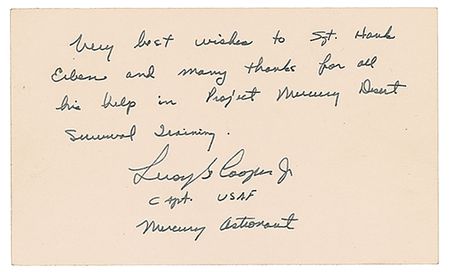 Very best wishes to Sgt. Hank
Eiben and many thanks for all
his help in Project Mercury Desert
Survival Training.
Leroy G Cooper Jr
Capt. USAF
Mercury Astronaut